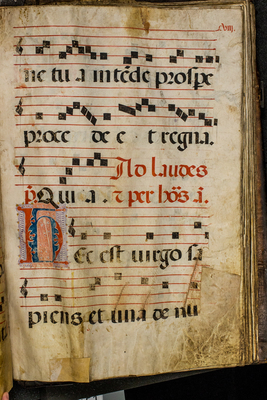 ne tu a intēde prospe
proce de e t regna.
Ad laudes
Qui a. ꞇ per hōs ā.
Hec est virgo sa
piens et una de nu